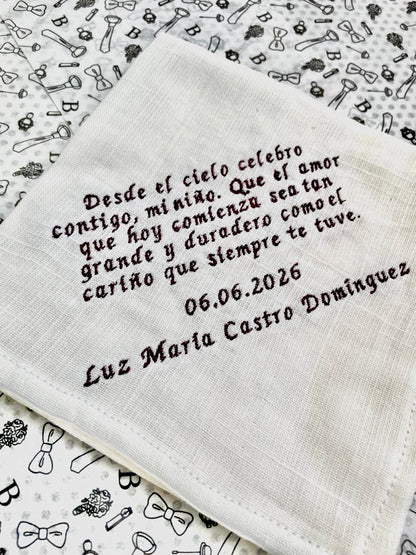 Desde el cielo celebro
contigo, mi niño. Que el amor
que hoy comienza sea tan
grande y duradero como el
cariño que siempre te tuve.
06.06.2026
Luz María Castro Domínguez